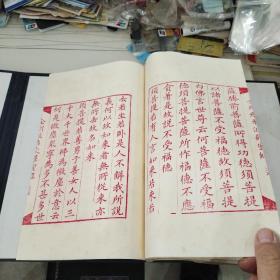 薩勝前菩薩所得功德須菩提
以諸菩薩不受福德故須菩提
白佛言世尊云何菩薩不受福
德須菩提菩薩所作福德不應
貪著是故說不受福德
須菩提若有人言如來若來若
去若坐若臥是人不解我所說
義何以故如來者無所從來亦
無所去故名如來
須菩提若善男子善女人以三
千大千世界碎為微塵於意云
何是微塵眾寧為多不甚多世